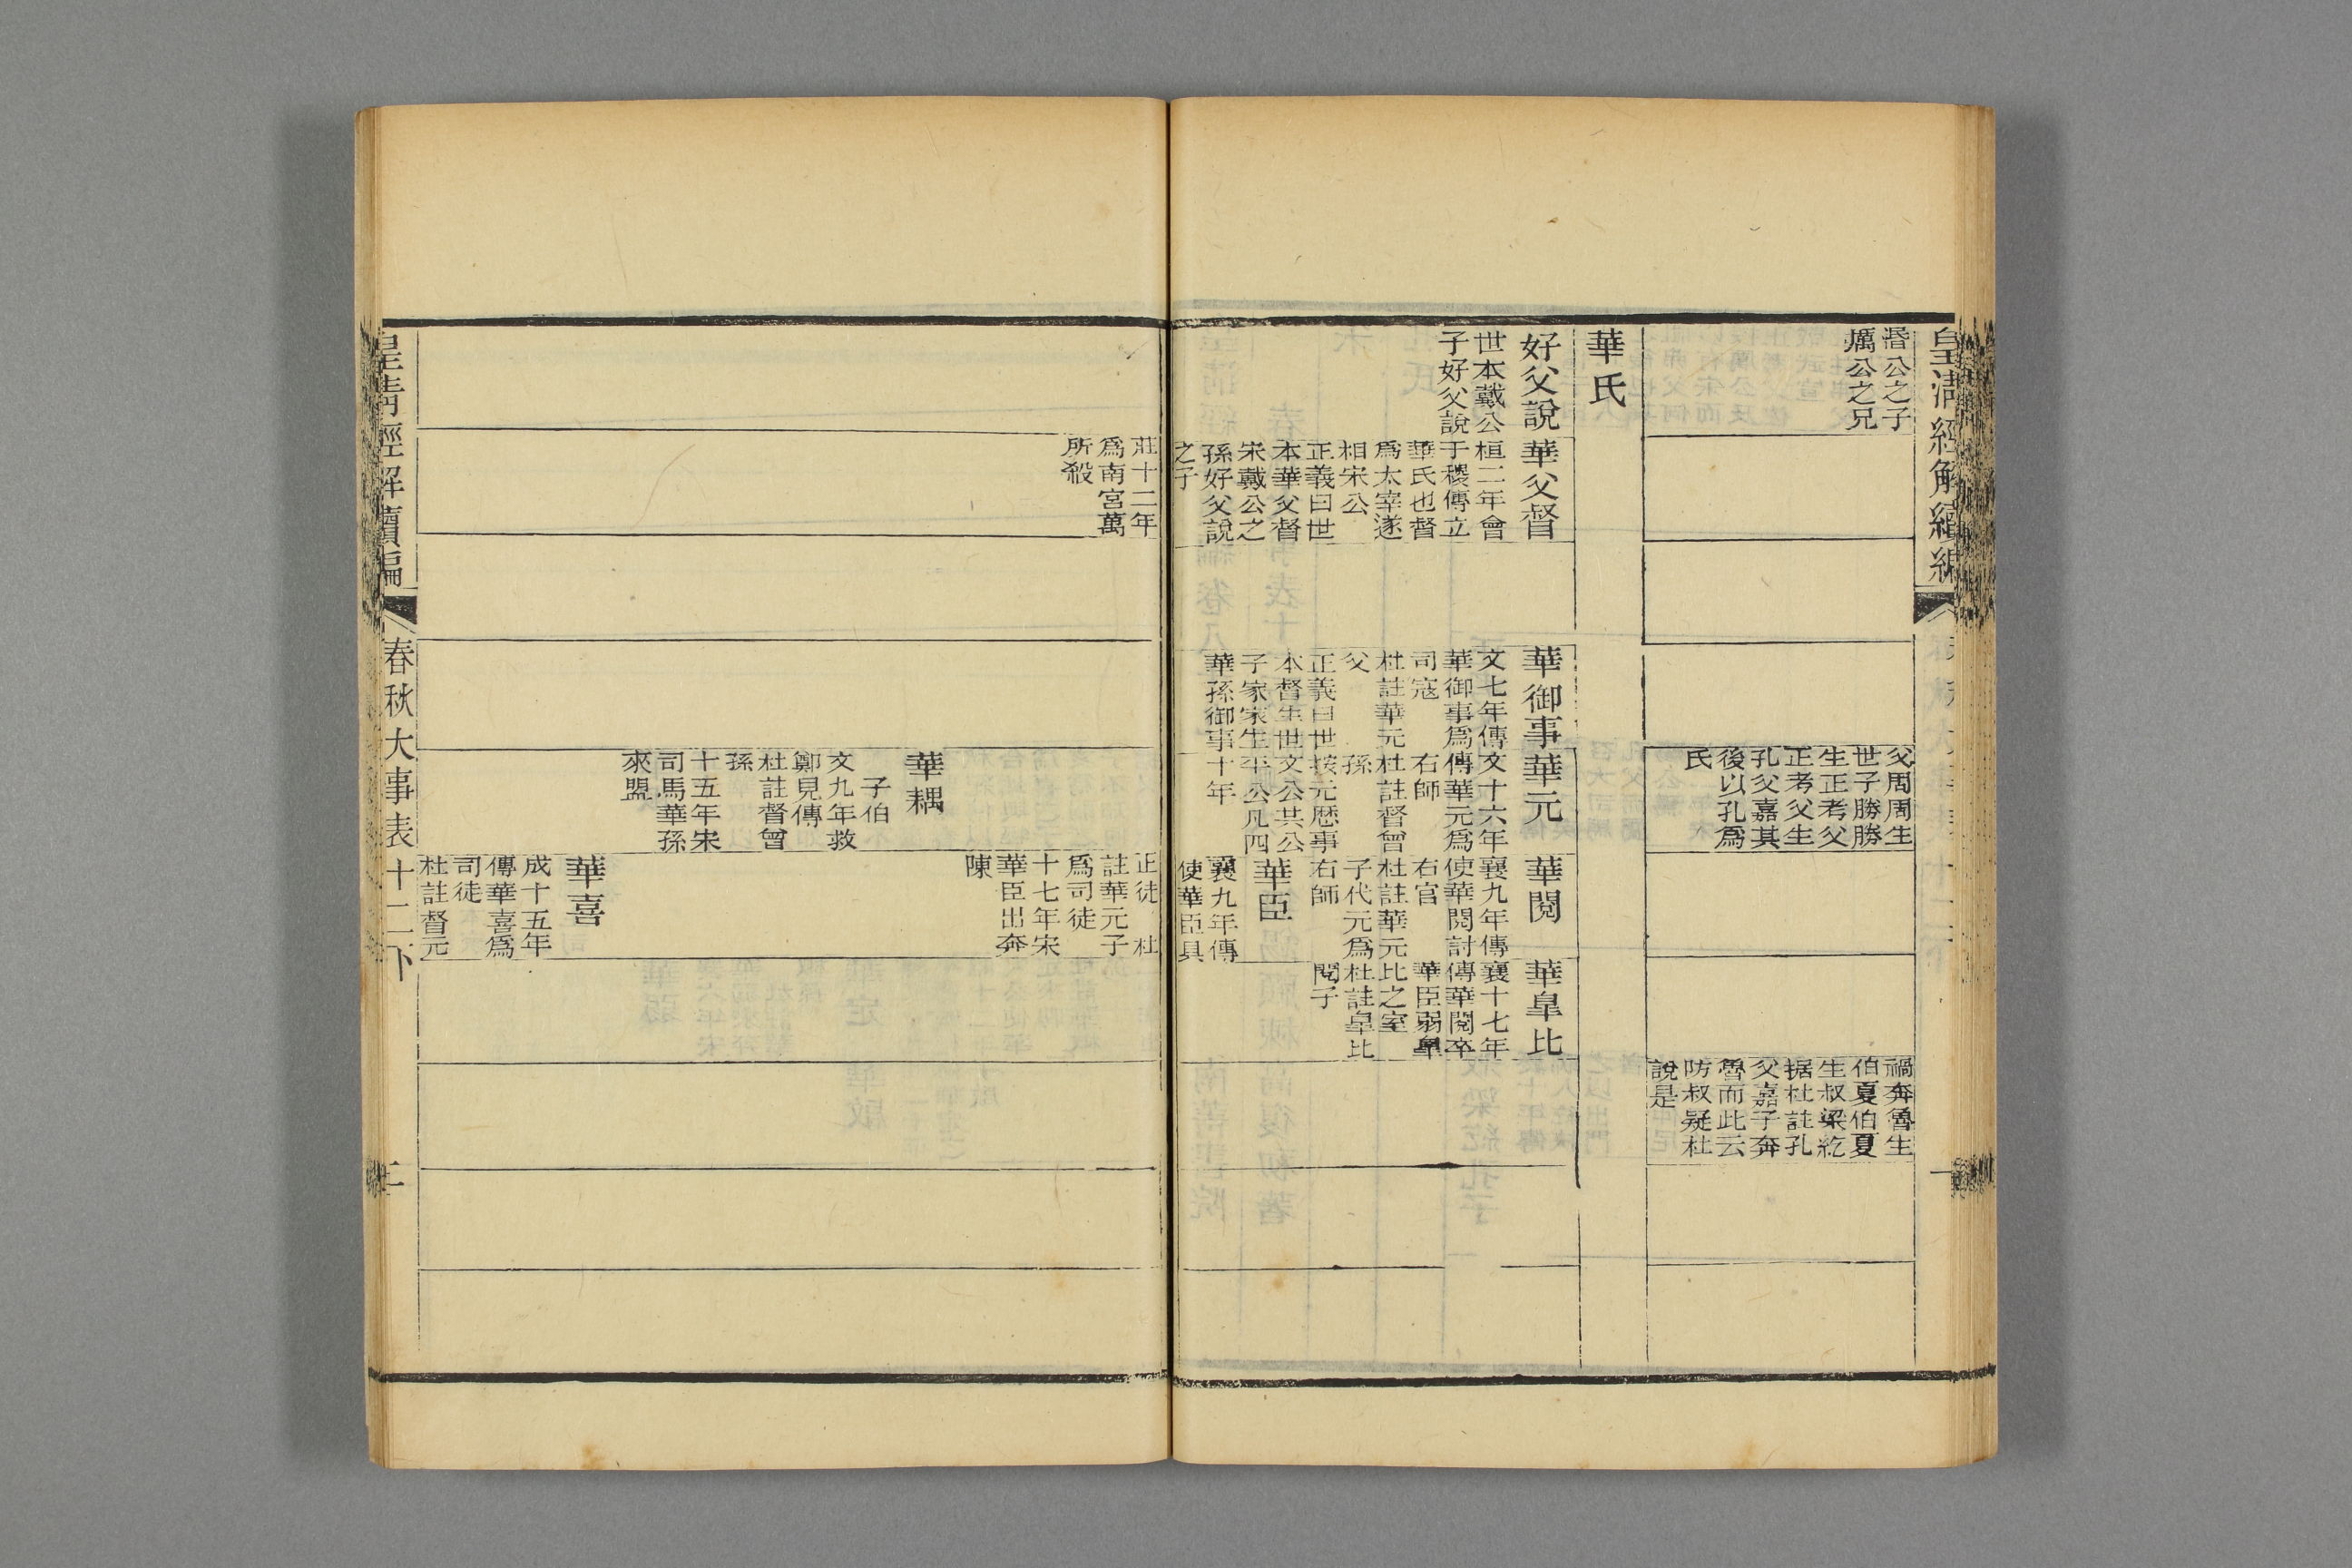 皇清經解續編
湣公之子
厲公之兄
父周周生
世子勝勝
生正考父
正考父生
孔父嘉其
後以孔爲
氏
禍奔魯生
伯夏伯夏
生叔梁紇
据杜註孔
父嘉子奔
魯而此云
防叔疑杜
說是
華氏
好父說
世本戴公
子好父說
華父督
桓二年會
于稷傳立
華氏也督
爲太宰遂
相宋公
正義曰世
本華父督
宋戴公之
孫好父說
之子
華御事
文七年傳
華御事爲
司寇
杜註華元
父
正義曰世
本督生世
子家家生
華孫御事
華元
文十六年
傳華元爲
右師
杜註督曾
孫
按元歷事
文公共公
平公凡四
十年
華閱
襄九年傳
使華閱討
右官
杜註華元
子代元爲
右師
華臣
襄九年傳
使華臣具
華臯比
襄十七年
傳華閱卒
華臣弱臯
比之室
杜註臯比
閱子
莊十二年
爲南宮萬
所殺
華耦
子伯
文九年救
鄭見傳
杜註督曾
孫
十五年宋
司馬華孫
來盟
正徒 杜
註華元子
爲司徒
十七年宋
華臣出奔
陳
華喜
成十五年
傳華喜爲
司徒
杜註督元
皇清經解續編
春秋大事表十二下
二